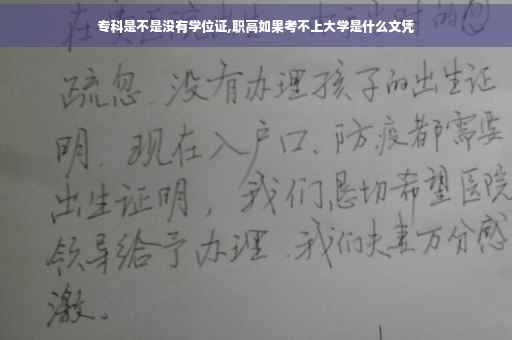 专科是不是没有学位证,职高如果考不上大学是什么文凭
疏忽、没有办理孩子的出生证
明、现在入户口、防疫都需要
出生证明，我们恳切希望医院
领导给予办理、我们夫妻万分感
激。